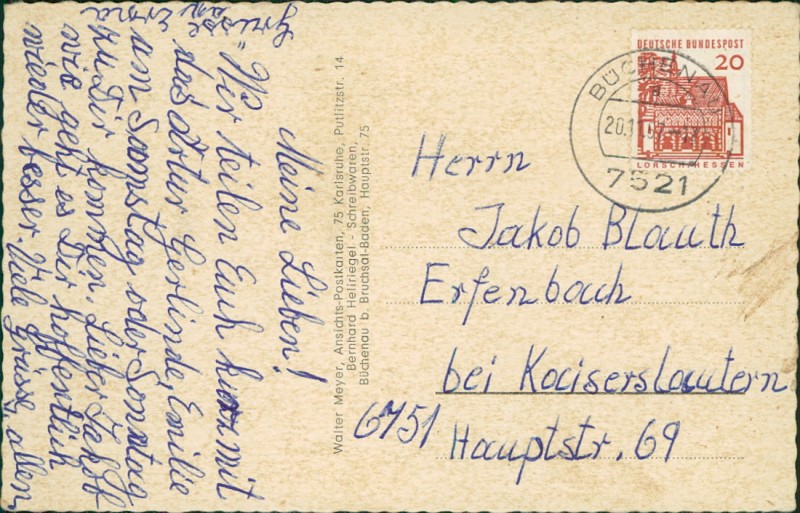 Meine Lieben!
Wir teilen Euch kurz mit
das Artur Gerlinde, Emilie
am Samstag oder Sonntag
zu Dir kommen. Lieber Jakob
wie geht es Dir hoffentlich
wieder besser. Viele Grüsse, allen
Walter Meyer, Ansichts-Postkarten, 75 Karlsruhe, Putlitzstr. 14
Bernhard Hellriegel - Schreibwaren,
Büchenau b. Bruchsal-Baden, Hauptstr. 75
DEUTSCHE BUNDESPOST
20
LORSCH/HESSEN
BÜCHENAU
a
20.11.67
7521
Herrn
Jakob Blauth
Erfenbach
bei Kaiserslautern
6751
Hauptstr. 69